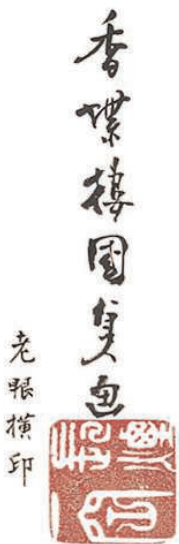 香蝶樓國貞画
老眼橫印